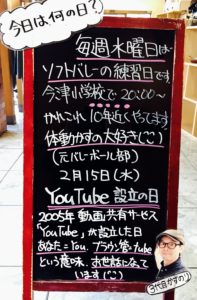 今日は何の日?
毎週水曜日は
ソフトバレーの練習日です
今津小学校で20:00〜
かれこれ10年近くやってます
体動かすの大好き(^^)
(元バレーボール部)
2月15日(水)
YouTube 設立の日
2005年 動画共有サービス
「YouTube」が設立した日
あなた=You. ブラウン管=tube
という意味. お世話になって
います(^^)
3代目かずのり